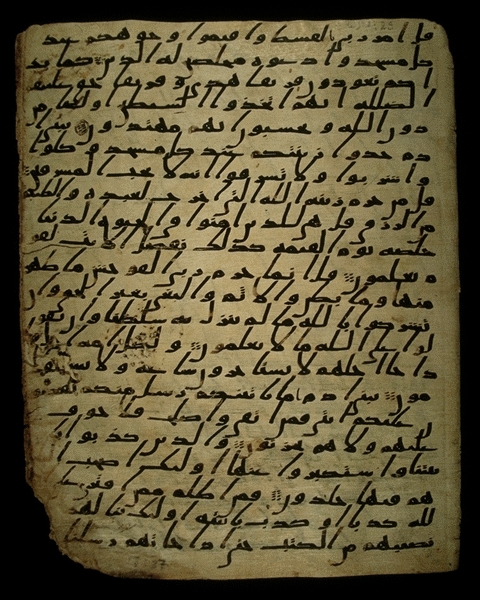 قل امر ربي بالقسط واقيموا وجوهكم عند
كل مسجد وادعوه مخلصين له الدين كما بد
اكم تعودون فريقا هدى وفريقا حق عليهم
الضللة انهم اتخذوا الشيطين اوليا م
ن دون الله ويحسبون انهم مهتدون يبني ا
دم خذوا زينتكم عند كل مسجد وكلوا
واشربوا ولا تسرفوا انه لا يحب المسرفين
قل من حرم زينة الله التي اخرج لعبده والطيبت
من الرزق قل هي للذين امنوا في الحيوة الدنيا
خلصة يوم القيمة كذلك نفصل الايت لقو
م يعلمون قل انما حرم ربي الفوحش ما ظهر
منها وما بطن والاثم والبغي بغير الحق وان
تشركوا بالله ما لم ينزل به سلطنا وان تقو
لوا على الله ما لا تعلمون ولكل امة اجل
فاذا جا اجلهم لا يستاخرون ساعة ولا يستقد
مون يبني ادم اما ياتينكم رسل منكم يقصو
ن عليكم ايتي فمن اتقى واصلح فلا خوف
عليهم ولا هم يحزنون والذين كذبوا با
يتنا واستكبروا عنها اوليك اصحب ا
هم فيها خلدون فمن اظلم ممن افترى على ا
لله كذبا او كذب بايته اوليك ينالهم
نصيبهم من الكتب حتى اذا جاتهم رسلنا